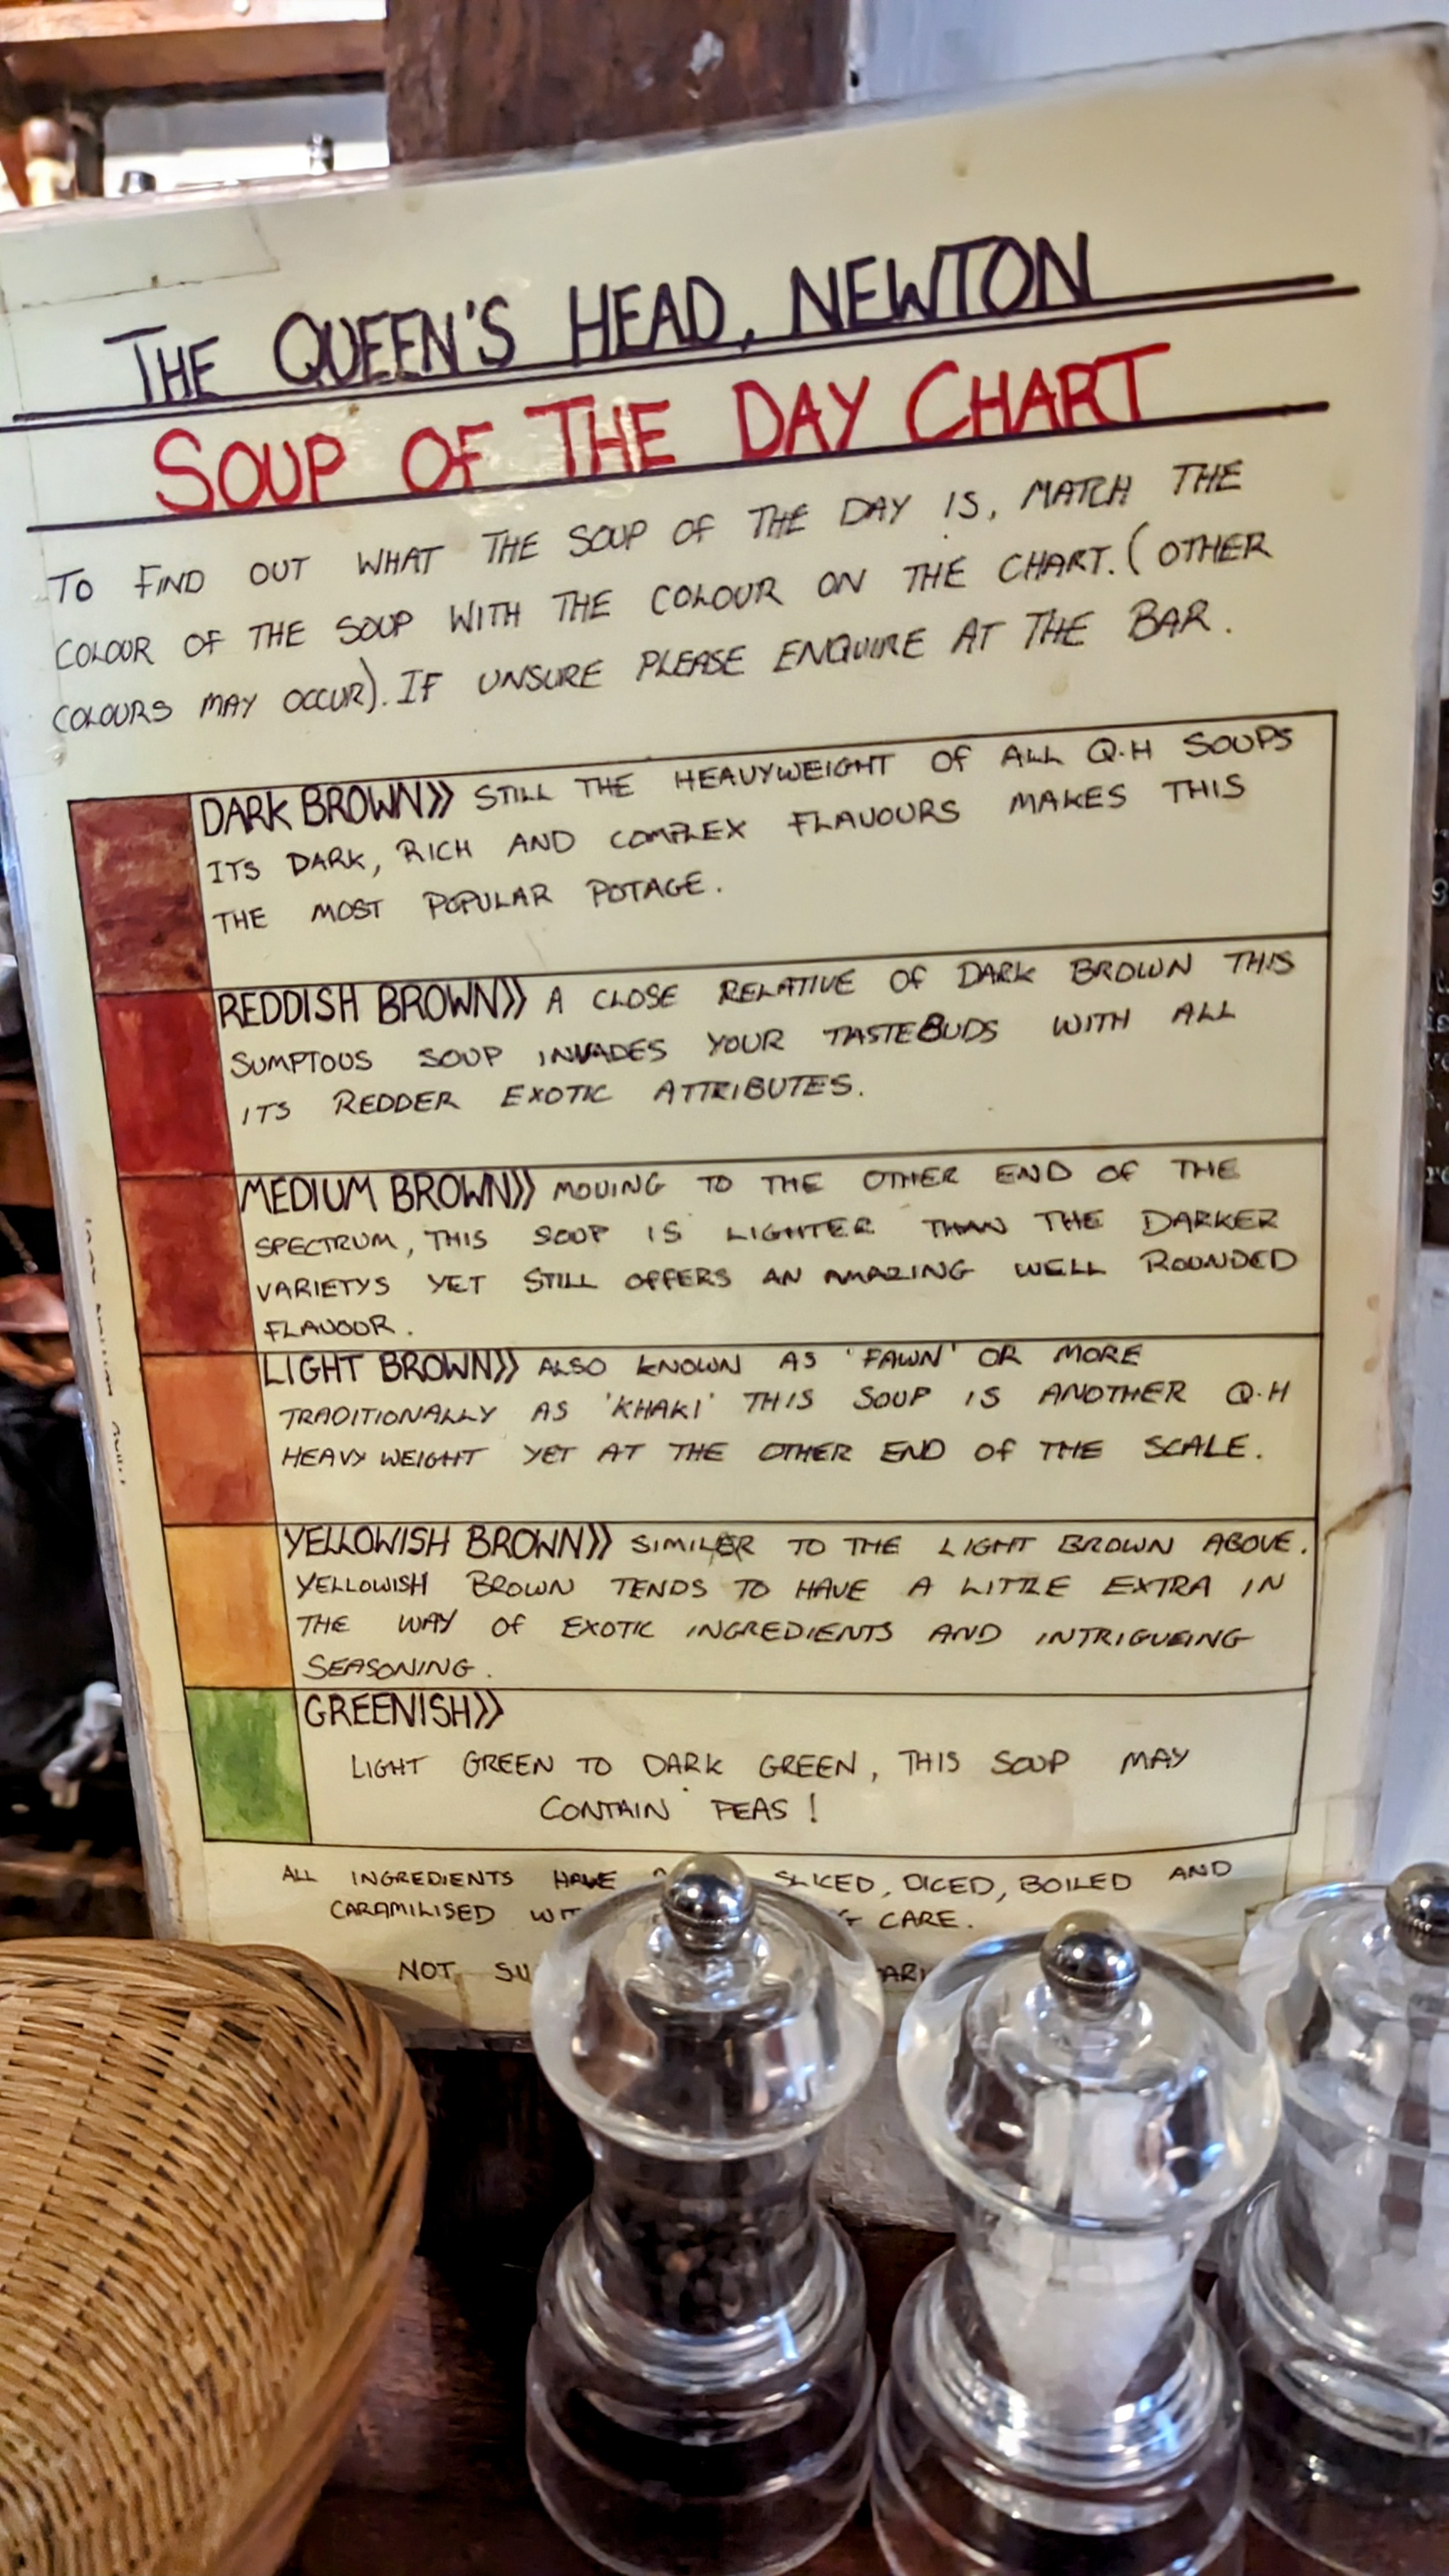 THE QUEEN'S HEAD, NEWTON
SOUP OF THE DAY CHART
TO FIND OUT WHAT THE SOUP OF THE DAY IS, MATCH THE
COLOUR OF THE SOUP WITH THE COLOUR ON THE CHART. (OTHER
COLOURS MAY OCCUR). IF UNSURE PLEASE ENQUIRE AT THE BAR.
DARK BROWN>> STILL THE HEAVYWEIGHT OF ALL Q.H SOUPS
ITS DARK, RICH AND COMPLEX FLAVOURS MAKES THIS
THE MOST POPULAR POTAGE.
REDDISH BROWN>> A CLOSE RELATIVE OF DARK BROWN THIS
SUMPTOUS SOUP INVADES YOUR TASTEBUDS WITH ALL
ITS REDDER EXOTIC ATTRIBUTES.
MEDIUM BROWN>> MOVING TO THE OTHER END OF THE
SPECTRUM, THIS SOUP IS LIGHTER THAN THE DARKER
VARIETYS YET STILL OFFERS AN AMAZING WELL ROUNDED
FLAVOUR.
LIGHT BROWN>> ALSO KNOWN AS 'FAWN' OR MORE
TRADITIONALLY AS 'KHAKI' THIS SOUP IS ANOTHER Q.H
HEAVYWEIGHT YET AT THE OTHER END OF THE SCALE.
YELLOWISH BROWN>> SIMILER TO THE LIGHT BROWN ABOVE.
YELLOWISH BROWN TENDS TO HAVE A LITTLE EXTRA IN
THE WAY OF EXOTIC INGREDIENTS AND INTRIGUEING
SEASONING.
GREENISH>>
LIGHT GREEN TO DARK GREEN, THIS SOUP MAY
CONTAIN PEAS!
ALL INGREDIENTS HAVE SLICED, DICED, BOILED AND
CARAMILISED CARE.
NOT